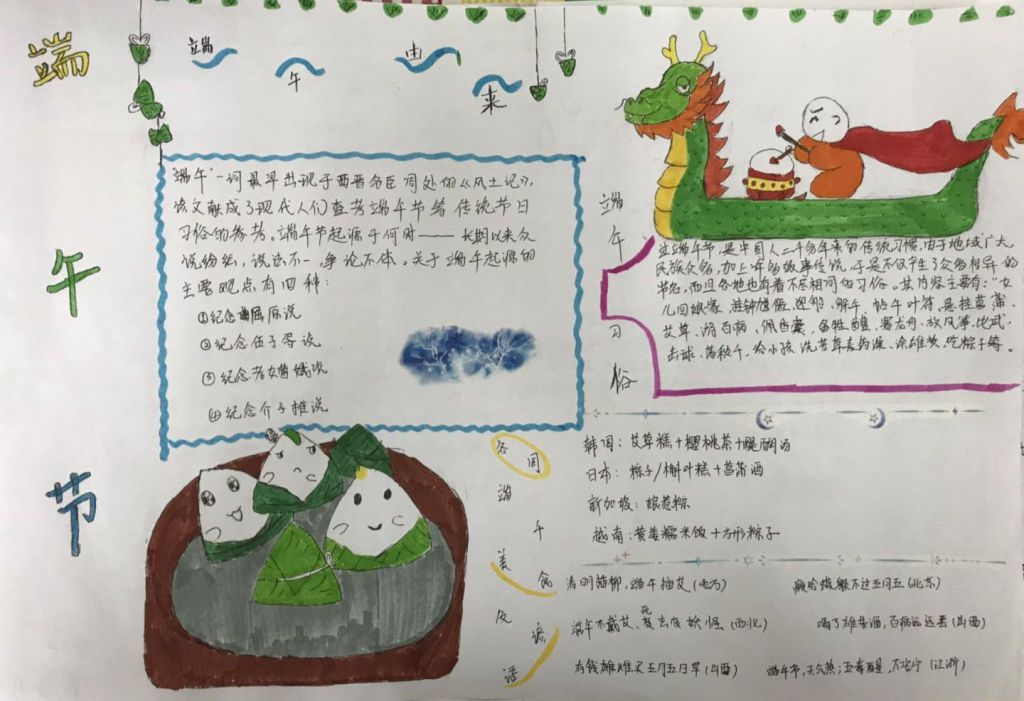 端
午
节
端午由来
端午"一词最早出现于西晋名臣周处的《风土记》,
该文献成了现代人们查考端午节等传统节日
习俗的参考。端午节起源于何时——长期以来众
说纷纭,说法不一,争论不休。关于端午起源的
主要观点有四种:
①纪念屈原说
②纪念伍子胥说
③纪念孝女曹娥说
④纪念介子推说
端午习俗
过端午节,是中国人二千多年来的传统习惯,由于地域广大,
民族众多,加上许多故事传说,于是不仅产生了众多相异的
节名,而且各地也有着不尽相同的习俗。其内容主要有:"女
儿回娘家,挂钟馗像,迎鬼船、躲午,帖午叶符,悬挂菖蒲、
艾草,游百病,佩香囊,备牲醴,赛龙舟,放风筝,比武,
击球、荡秋千,给小孩涂雄黄,吃粽子等。
各国端午美食及谚语
韩国:艾草糕+樱桃茶+醍醐汤
日本:粽子/槲叶糕+菖蒲酒
新加坡:娘惹粽
越南:黄姜糯米饭+方形粽子
清明插柳,端午插艾(地方)
癞蛤蟆躲不过五月五(北京)
端午不戴艾,死去变妖怪(西北)
喝了雄黄酒,百病远远丢(山西)
有钱难买五月五日旱(山西)
端午节,天气热;五毒醒,不安宁(江浙)